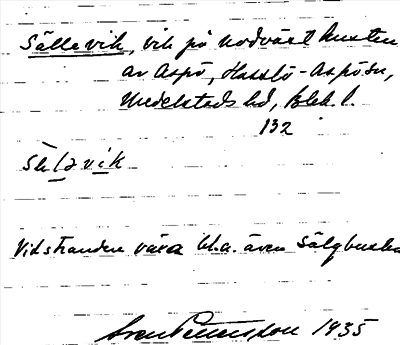 Sällevik, vik på nordväst kusten
av Aspö, Hasslö-Aspö sn,
Medelstads hd, Blek. l.
132
Vid stranden växa bl.a. även Sälgbuskar
Sven Pettersson 1935